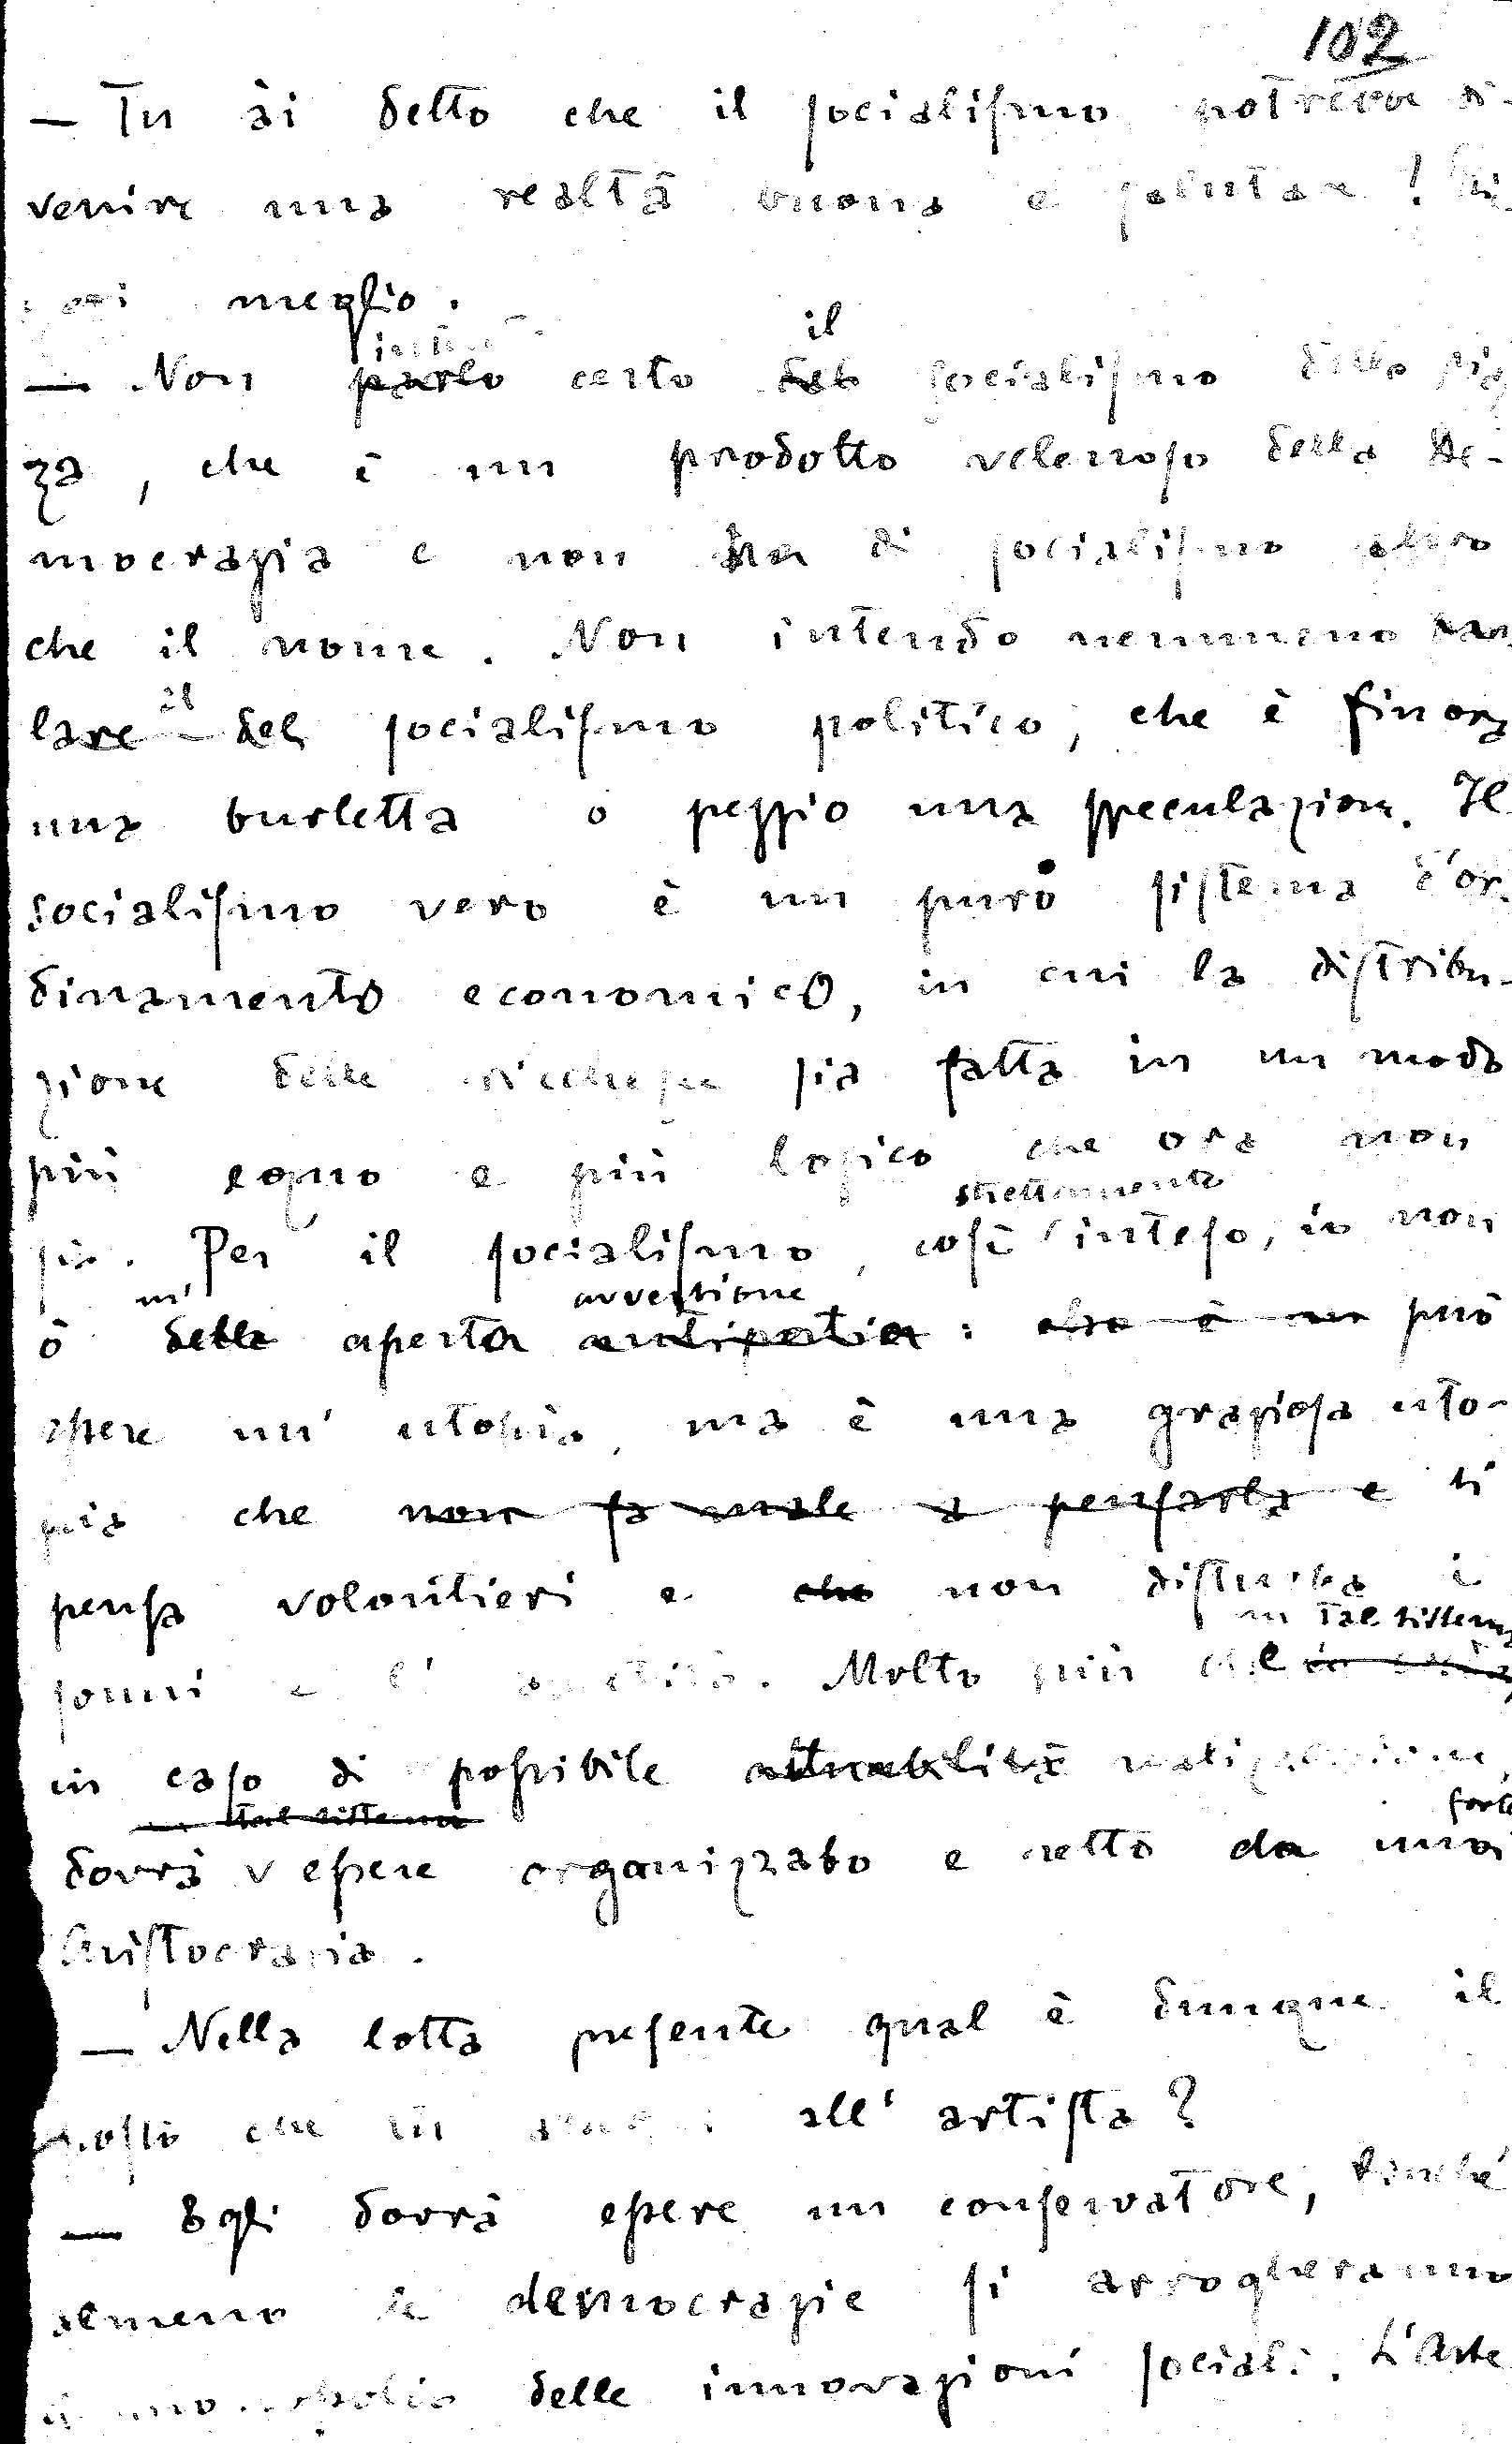 102
— Tu ài detto che il socialismo potrebbe di-
venire una realtà buona e salutare!
meglio.
il
— Non parlo certo del socialismo della piaz-
za, che è un prodotto velenoso della De-
mocrazia e non ha di socialismo altro
che il nome. Non intendo nemmeno par-
il
lare del socialismo politico, che è finora
una burletta o peggio una speculazione. Il
socialismo vero è un puro sistema d'or-
dinamento economico, in cui la distribu-
zione delle ricchezze sia fatta in un modo
più equo e più logico che ora non
strettamente
sia. Per il socialismo, così inteso, io non
un' avversione
ò della aperta antipatia: può
essere un' utopia, ma è una graziosa uto-
pia che non fa male a pensarla e si
pensa volontieri e che non disturba i
tal sistema
sonni e l' appetito. Molto più che
in caso di possibile attuabilità realizzazione,
tal sistema forte
dovrà essere organizzato e retto da una
Aristocrazia.
— Nella lotta presente qual è dunque il
posto che tu all' artista?
— Egli dovrà essere un conservatore, finché
almeno le democrazie si arrogheranno
il monopolio delle innovazioni sociali. L'Arte